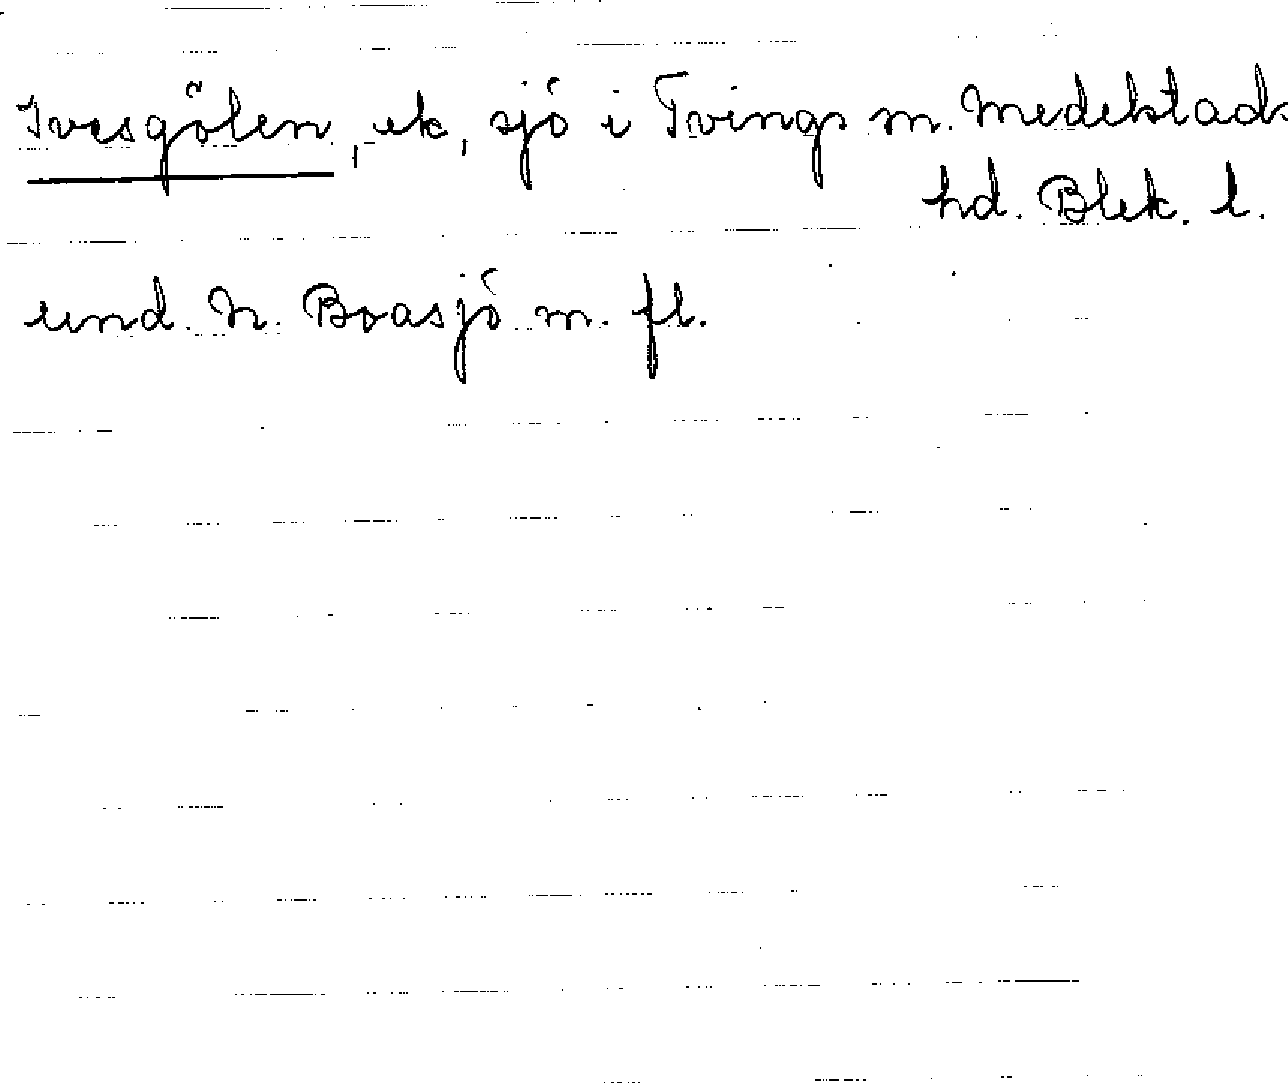 Ivesgölen, ek, sjö i Tvings sn. Medelstads
hd. Blek. l.
und. N. Boasjö m. fl.